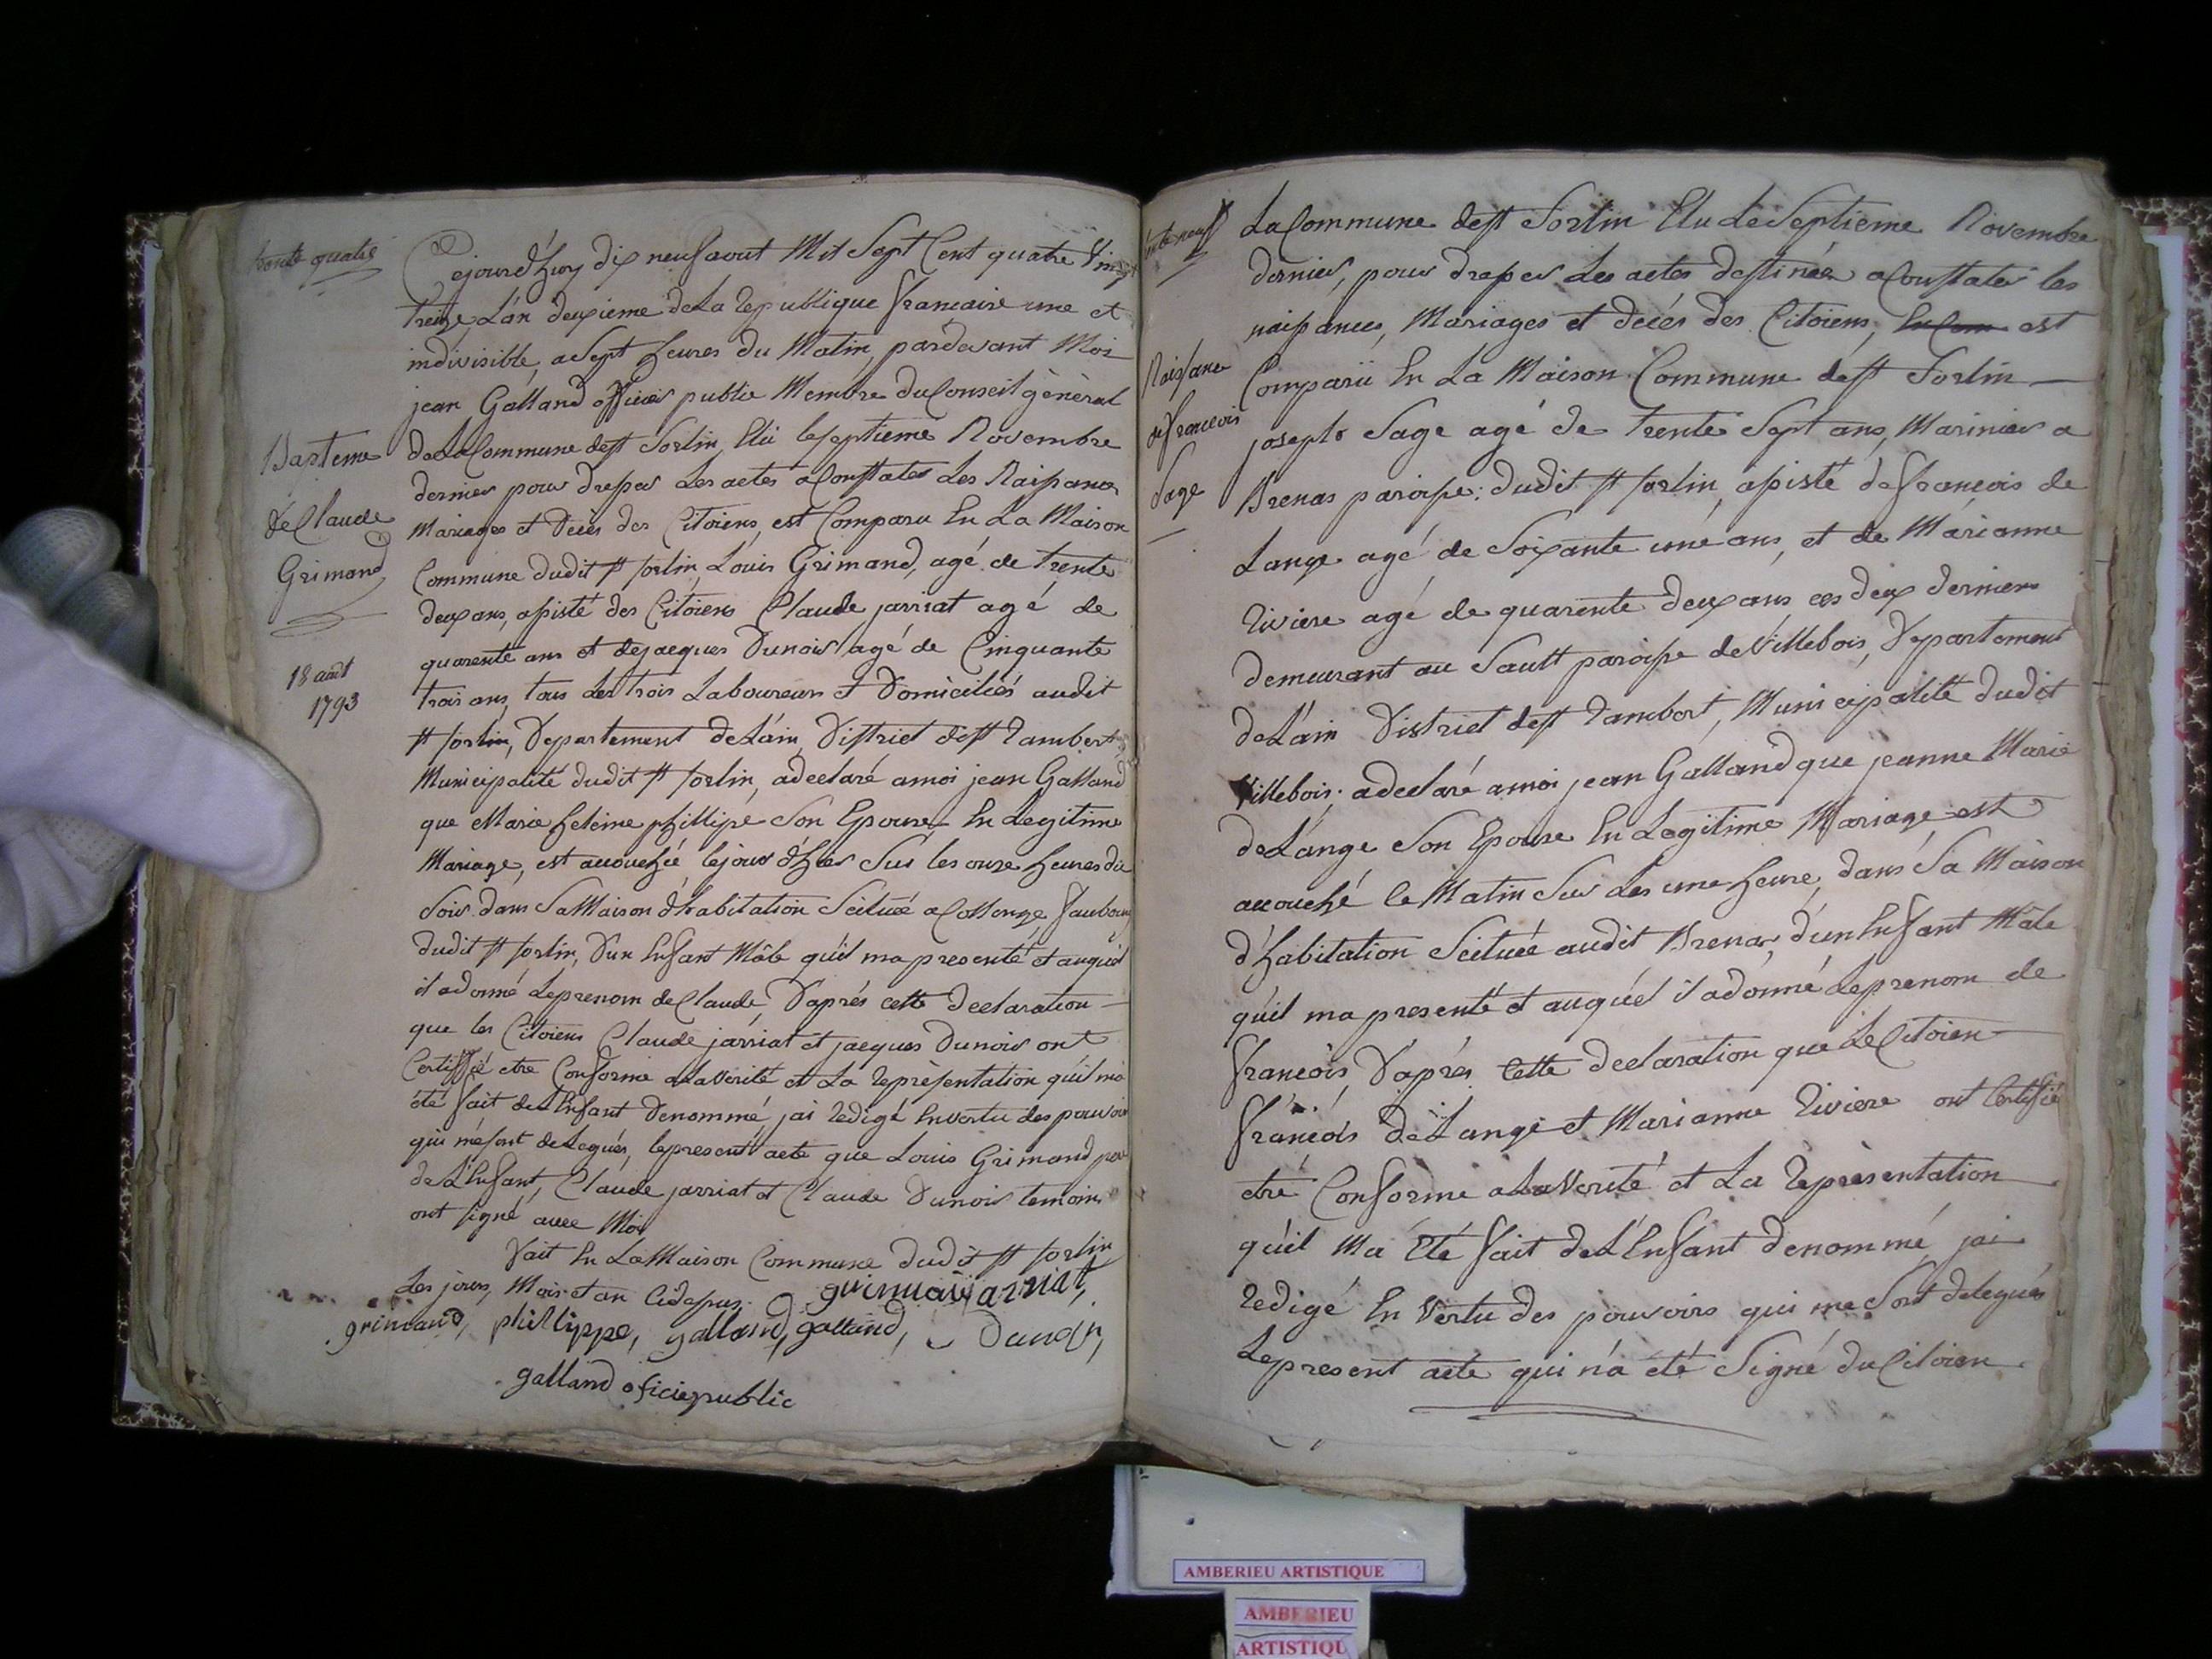 trente quatre
Cejourd'huy dix neuf aout Mil Sept Cent quatre Vingt
treize L'an deuxieme de La republique francaise une et
indivisible, a Sept heures du Matin, pardevant Moi
jean Galland officier public Membre du Conseil général
de La Commune de st Sorlin Elu le septieme Novembre
dernier pour dresser Les actes a Constater Les Naissances
Mariages et Décès des Citoiens, est Comparu En La Maison
Commune dudit st sorlin, Louis Grimand, agé de trente
deux ans, assisté des Citoiens Claude jarriat agé de
quarente ans et de jacques Dunois agé de Cinquante
trois ans, tous Les trois Laboureurs et Domiciliés audit
st sorlin, Département de L'ain, District de st rambert
Municipalité dudit st sorlin, a declaré a moi jean Galland
que Marie heleine phillipe Son Epouse En Legitime
Mariage, est accouchée le jour d'hier Sur les onze heures du
Soir dans Sa Maison d'habitation Scituée a Collonge, faubourg
dudit st sorlin, D'un Enfant Mâle qu'il ma presenté et auquel
il a donné Le prenom de Claude, D'aprés cette Declaration
que les Citoiens Claude jarriat et jacques Dunois ont
Certiffié etre Conforme a La Verité et La représentation qu'il m'a
été fait de L'Enfant Denommé, jai redigé En vertu des pouvoirs
qui me sont delegués, le present acte que Louis Grimand pere
de L'Enfant, Claude jarriat et Claude Dunois temoins
ont signé avec Moi
Fait En La Maison Commune dudit st sorlin
Les jours, Mois et an Cidessus.
jarriat,
grimand, phillippe, galland, galland,
galland oficie public
Basteme
de Claude
Grimand
18 août
1793
La Commune de st Sorlin Elu Le Septieme Novembre
dernier, pour dresser Les actes destinées a Constater les
naissances, Mariages et décés des Citoiens, est
Comparu En La Maison Commune de st Sorlin
joseph Sage agé de trente Sept ans, Marinier a
Brenas paroisse dudit st sorlin, assisté de francois de
Lange agé de Soixante une ans, et de Marianne
riviere agé de quarente deux ans ces deux derniers
demeurant au Sault paroisse de Villebois, Département
de L'ain District de st rambert, Municipalité dudit
Villebois, a declaré a moi jean Galland que jeanne Marie
de Lange Son Epouse En Legitime Mariage est
accouché le Matin Sur Les une heure, dans Sa Maison
d'habitation Scituée audit Brenas, d'un Enfant Mâle
qu'il ma presenté et auquel il a donné Le prenom de
francois, D'aprés Cette declaration que Le Citoien
francois de Lange et Marianne riviere ont Certifié
etre Conforme a La Verité et La représentation
qu'il M'a été fait de L'Enfant denommé, jai
redigé En Vertu des pouvoirs qui me Sont delegués
Le present acte qui n'a été Signé du Citoien
Naissance
de francois
Sage
AMBERIEU ARTISTIQUE
AMBERIEU
ARTISTIQU